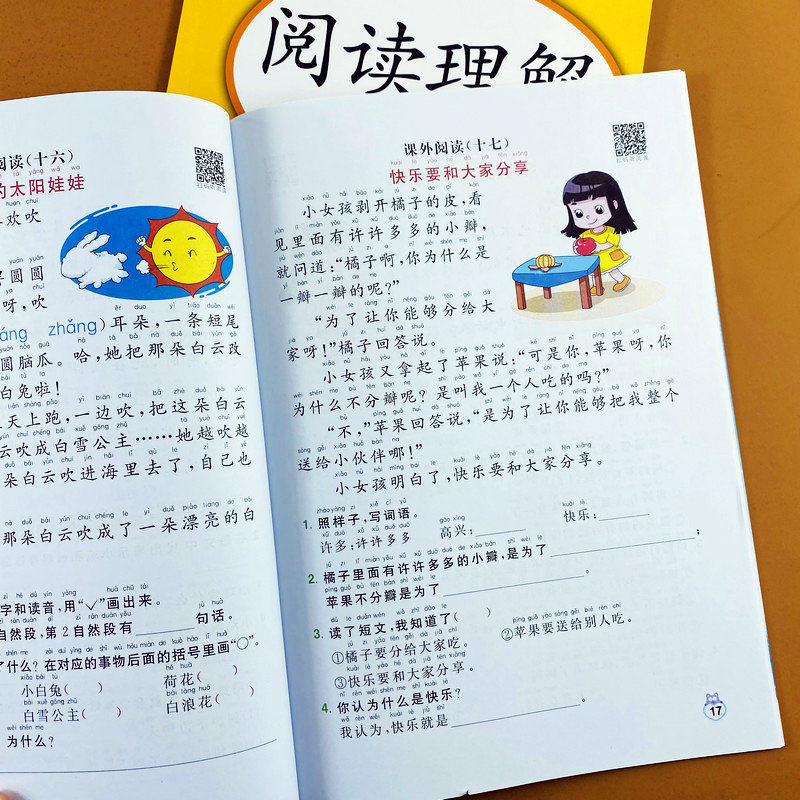 阅读理解
阅读(十六)
扫码听阅读
的太阳娃娃
欢吹
圆圆
呀，吹
zhǎng)耳朵，一条短尾
圆脑瓜。哈，她把那朵白云改
白兔啦！
天上跑，一边吹，把这朵白云
云吹成白雪公主……她越吹越
朵白云吹进海里去了，自己也
那朵白云吹成了一朵漂亮的白
字和读音，用“√”画出来。
自然段，第2自然段有______句话。
了什么？在对应的事物后面的括号里画“○”。
小白兔( ) 荷花( )
白雪公主( ) 白浪花( )
为什么？
课外阅读(十七)
扫码听阅读
kuài lè yào hé dà jiā fēn xiǎng
快乐要和大家分享
小女孩剥开橘子的皮，看
见里面有许许多多的小瓣，
就问道：“橘子啊，你为什么是
一瓣一瓣的呢？”
“为了让你能够分给大
家呀！”橘子回答说。
小女孩又拿起了苹果说：“可是你，苹果呀，你
为什么不分瓣呢？是叫我一个人吃的吗？”
“不，”苹果回答说，“是为了让你能够把我整个
送给小伙伴哪！”
小女孩明白了，快乐要和大家分享。
1. 照样子，写词语。
许多：许许多多 高兴：______ 快乐：______
2. 橘子里面有许许多多的小瓣，是为了______；
苹果不分瓣是为了______。
3. 读了短文，我知道了( )
①橘子要分给大家吃。 ②苹果要送给别人吃。
③快乐要和大家分享。
4. 你认为什么是快乐？
我认为，快乐就是______。
17